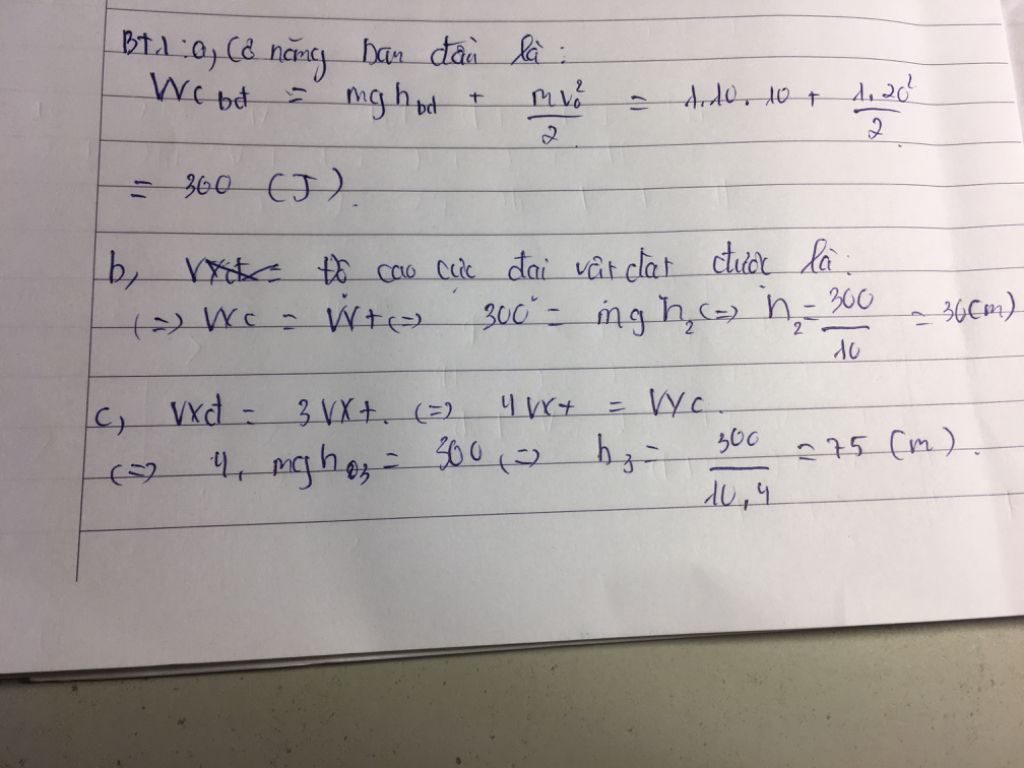 BT1: a, Cơ năng ban đầu là:
Wc bđ = mgh bđ + mv₀²/2 = 1.10.10 + 1.20²/2
= 300 (J).
b, Độ cao cực đại vật đạt được là:
(=> Wc = Wt <=> 300 = mgh₂ <=> h₂ = 300/10 = 30(m)
c, Wđ = 3Wt. <=> 4Wt = Wc.
<=> 4. mgh₀₃ = 300 <=> h₃ = 300/10.4 = 75 (m).